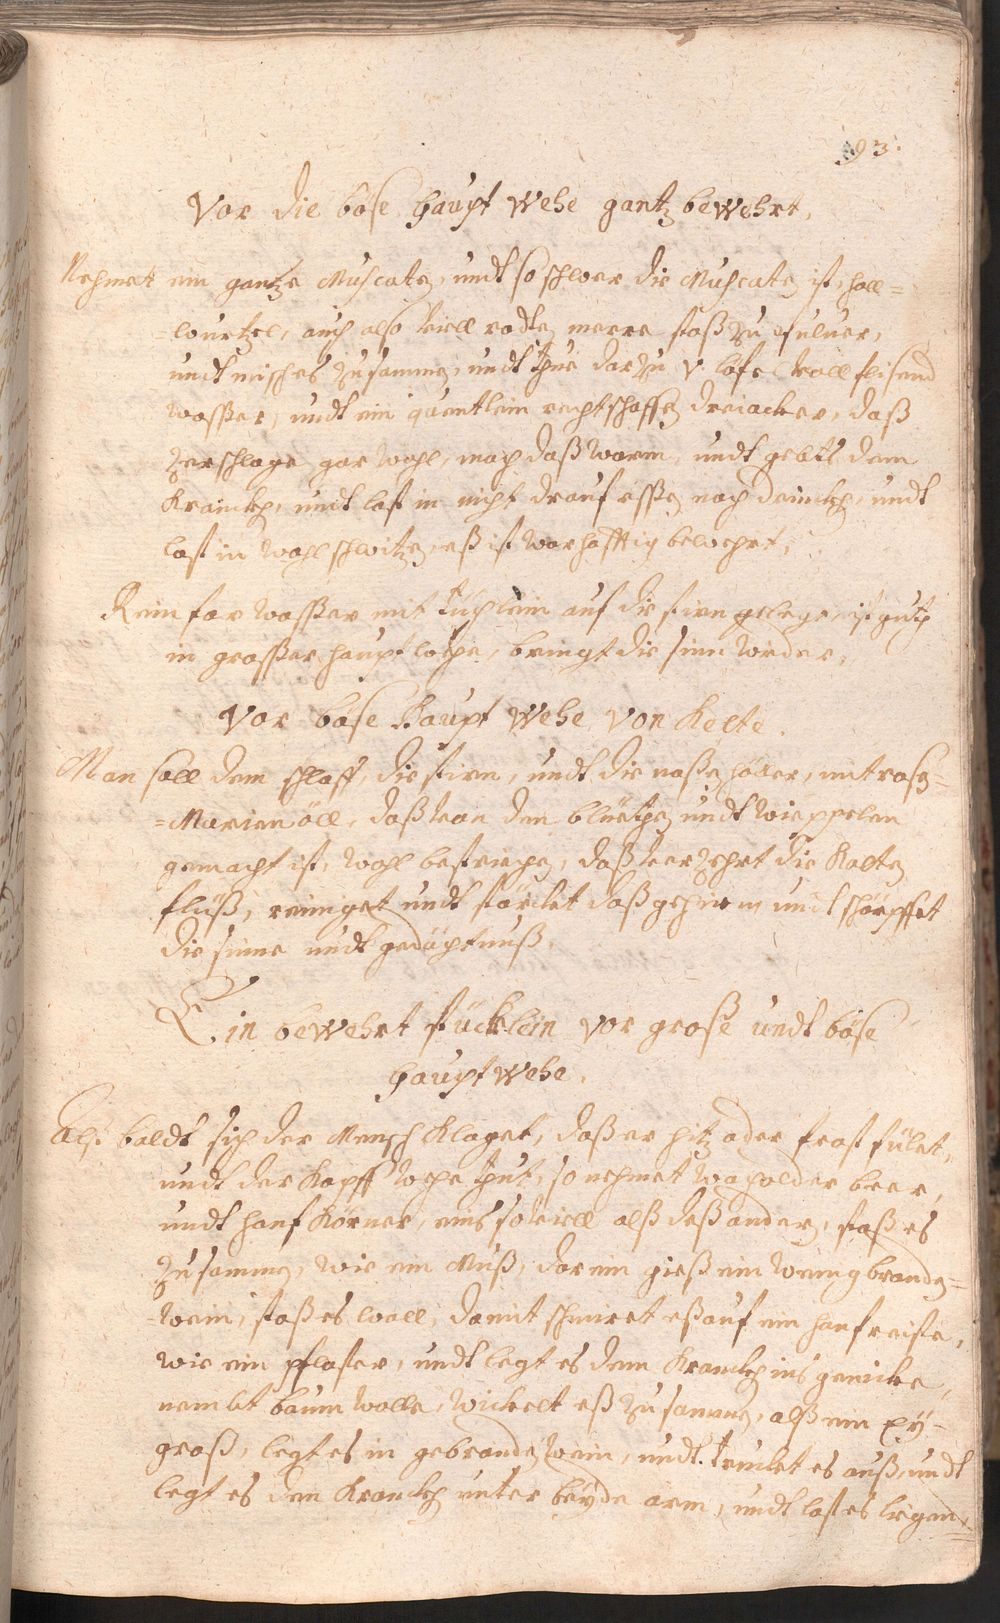 93.
Vor die böse haupt wehe gantz bewehrt,
Nehmet ein gantze Muscaten, undt so schwer die Muscaten ist, holl=
=wurtzel, auch also viell rodten merre stoß zu puluer,
undt misch es zusammen, undt thue dar zu V löfel voll flisend
waßer, undt ein quentlein rechtschaffen dreiacker, daß
zerschlage gar wohl, mach daß warm, undt gebts dem
krancken, undt last in nicht drauf eßen noch drincken, undt
last in wohl schwitzen, eß ist warhafftig bewehrt,
Reinfar waßer mit tüchlein auf die stirn gelege, ist guth
in großer haupt wehe, bringt die sinn wieder,
Vor böse haupt wehe von Kelte.
Man soll dem schlaff, die stirn, undt die naßen höller, mit rosen=
=Marien öll, daß von den blüethen undt wippelen
gemacht ist, wohl bestreichen, daß verzehrt die kalten
flüß, reiniget undt stärcket daß gehirn undt schärpffet
die sinne undt gedächtnuß,
Ein bewehrt stücklein vor große undt böse
haupt wehe.
Alß baldt sich der Mensch klaget, daß er hitz oder frost fület,
undt der kopff wehe thut, so nehmet wacholder beer,
undt hanf körner, eins so viell alß deß andern, stoß es
zusammen, wie ein Muß, dar ein gieß ein wenig branden=
=wein, stoß es woll, damit schmiret eß auf ein hanf reiste,
wie ein pflaster, undt legt es dem krancken ins genicke,
nembt baum wolle, wickelt eß zusammen, alß ein Eÿ
groß, legt es in gebranden wein, undt truckt es auß, undt
legt es dem krancken unter beÿde arm, undt last es ligen